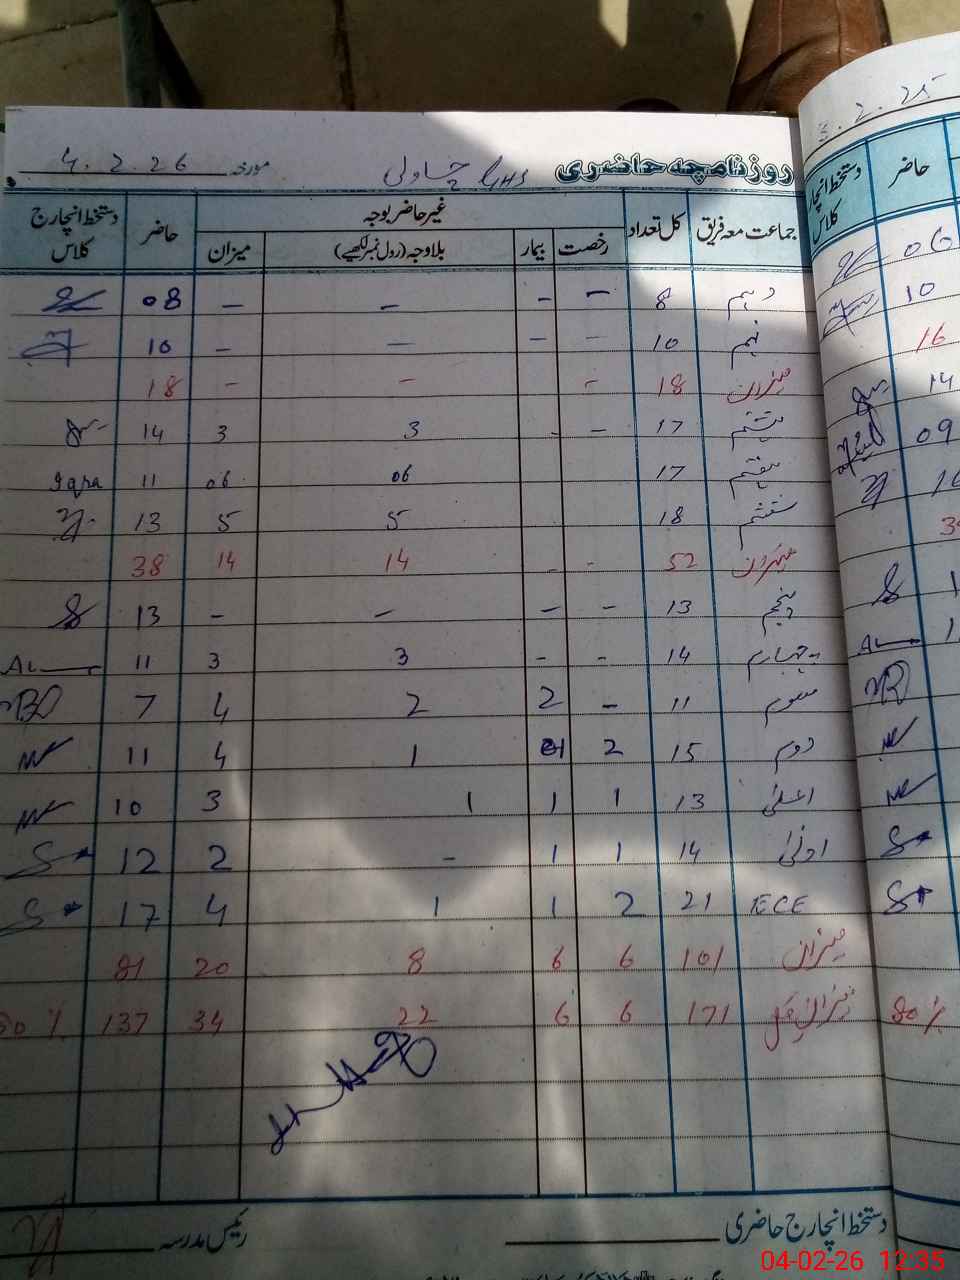 روزنامچہ حاضری GHS چاولی مورخہ 4.2.26
جماعت معہ فریق کل تعداد غیر حاضر بوجہ حاضر دستخط انچارج کلاس
رخصت بیمار بلاوجہ (رول نمبر لکھیے) میزان
دہم 8 - - - - 08
نہم 10 - - - - 10
میزان 18 - - - 18
ہشتم 17 - - 3 3 14
ہفتم 17 06 06 11 Iqra
ششم 18 5 5 13
میزان 52 - - 14 14 38
پنجم 13 - - - - 13
چہارم 14 - - 3 3 11
سوم 11 - 2 2 4 7
دوم 15 2 1 1 4 11
اعلیٰ 13 1 1 1 3 10
ادنیٰ 14 1 1 - 2 12
ECE 21 2 1 1 4 17
میزان 101 6 6 8 20 81
میزان کل 171 6 6 22 34 137 80 %
دستخط انچارج حاضری رئیس مدرسہ
3.2.25
حاضر دستخط انچارج کلاس
06
10
16
14
09
80 %
04-02-26 12:35